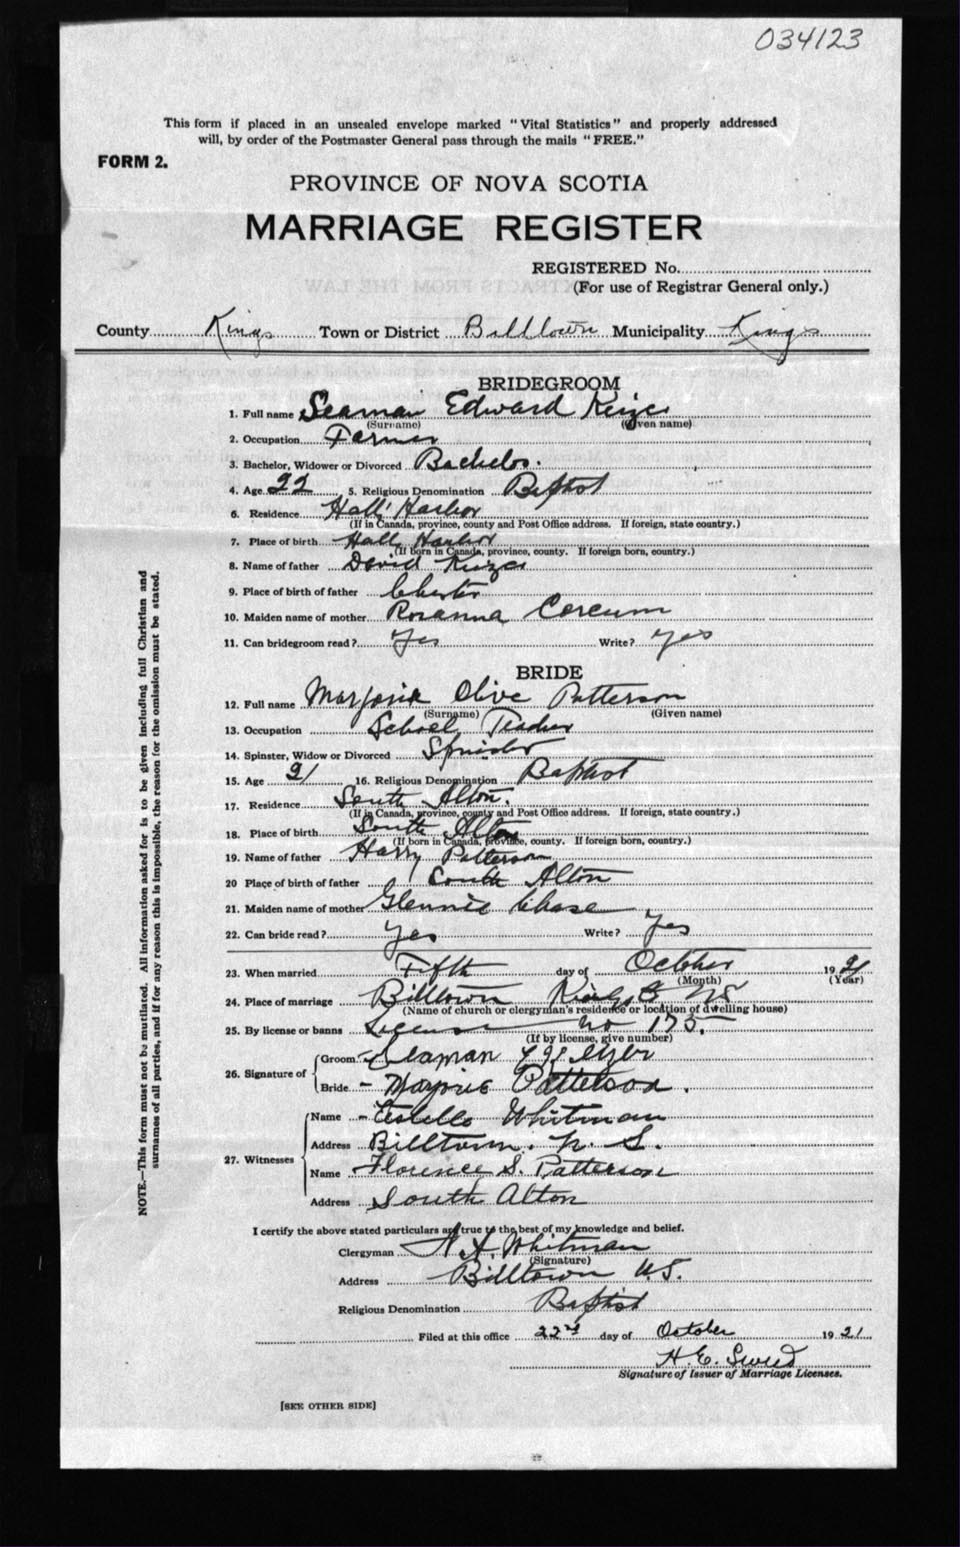 034123
This form if placed in an unsealed envelope marked "Vital Statistics" and properly addressed
will, by order of the Postmaster General pass through the mails "FREE."
FORM 2.
PROVINCE OF NOVA SCOTIA
MARRIAGE REGISTER
REGISTERED No.
(For use of Registrar General only.)
County Kings Town or District Billtown Municipality Kings
BRIDEGROOM
1. Full name Seaman Edward Keizer
(Surname) (Given name)
2. Occupation Farmer
3. Bachelor, Widower or Divorced Bachelor.
4. Age 22 5. Religious Denomination Baptist
6. Residence Halls Harbor
(If in Canada, province, county and Post Office address. If foreign, state country.)
7. Place of birth Halls Harbor
(If born in Canada, province, county. If foreign born, country.)
8. Name of father David Keizer
9. Place of birth of father Chester
10. Maiden name of mother Rosanna Corcum
11. Can bridegroom read? Yes Write? Yes
BRIDE
12. Full name Marjorie Olive Patterson
(Surname) (Given name)
13. Occupation School Teacher
14. Spinster, Widow or Divorced Spinster
15. Age 21 16. Religious Denomination Baptist
17. Residence South Alton.
(If in Canada, province, county and Post Office address. If foreign, state country.)
18. Place of birth South Alton
(If born in Canada, province, county. If foreign born, country.)
19. Name of father Harry Patterson
20 Place of birth of father South Alton
21. Maiden name of mother Glennie Chase
22. Can bride read? Yes Write? Yes
23. When married Fifth day of October 1921
(Month) (Year)
24. Place of marriage Billtown Kings Co NS
(Name of church or clergyman's residence or location of dwelling house)
25. By license or banns License no 175.
(If by license, give number)
26. Signature of
Groom Seaman Keizer
Bride - Marjorie Patterson.
27. Witnesses
Name - Estella Whitman
Address Billtown. N. S.
Name Florence S. Patterson
Address South Alton
I certify the above stated particulars are true to the best of my knowledge and belief.
Clergyman N. A. Whitman
(Signature)
Address Billtown N.S.
Religious Denomination Baptist
Filed at this office 22nd day of October 1921
H. E.
Signature of Issuer of Marriage Licenses.
[SEE OTHER SIDE]
NOTE.—This form must not be mutilated. All information asked for is to be given including full Christian and
surnames of all parties, and if for any reason this is impossible, the reason for the omission must be stated.